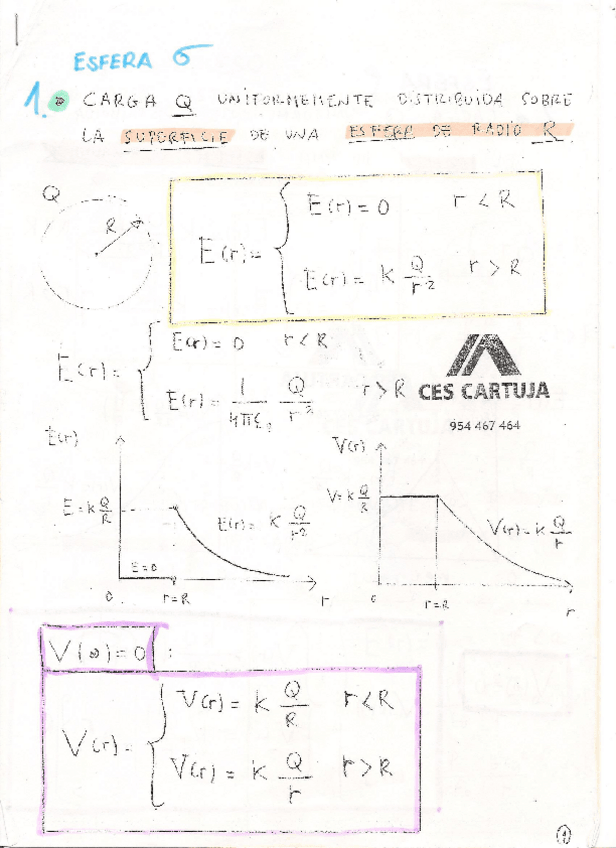 ESFERA σ
1. CARGA Q UNIFORMEMENTE DISTRIBUIDA SOBRE
LA SUPERFICIE DE UNA ESFERA DE RADIO R
Q
R
E(r) = { E(r) = 0 r < R
E(r) = K Q/r² r > R
E(r) = { E(r) = 0 r < R
E(r) = 1/4πε₀ Q/r² r > R
CES CARTUJA
954 467 464
E(r)
E = K Q/R
E(r) = K Q/r²
E = 0
0 r = R r
V(r)
V = K Q/R
V(r) = K Q/r
0 r = R r
V(∞) = 0 :
V(r) = { V(r) = K Q/R r < R
V(r) = K Q/r r > R
1